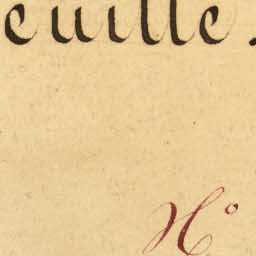 euille.
N°